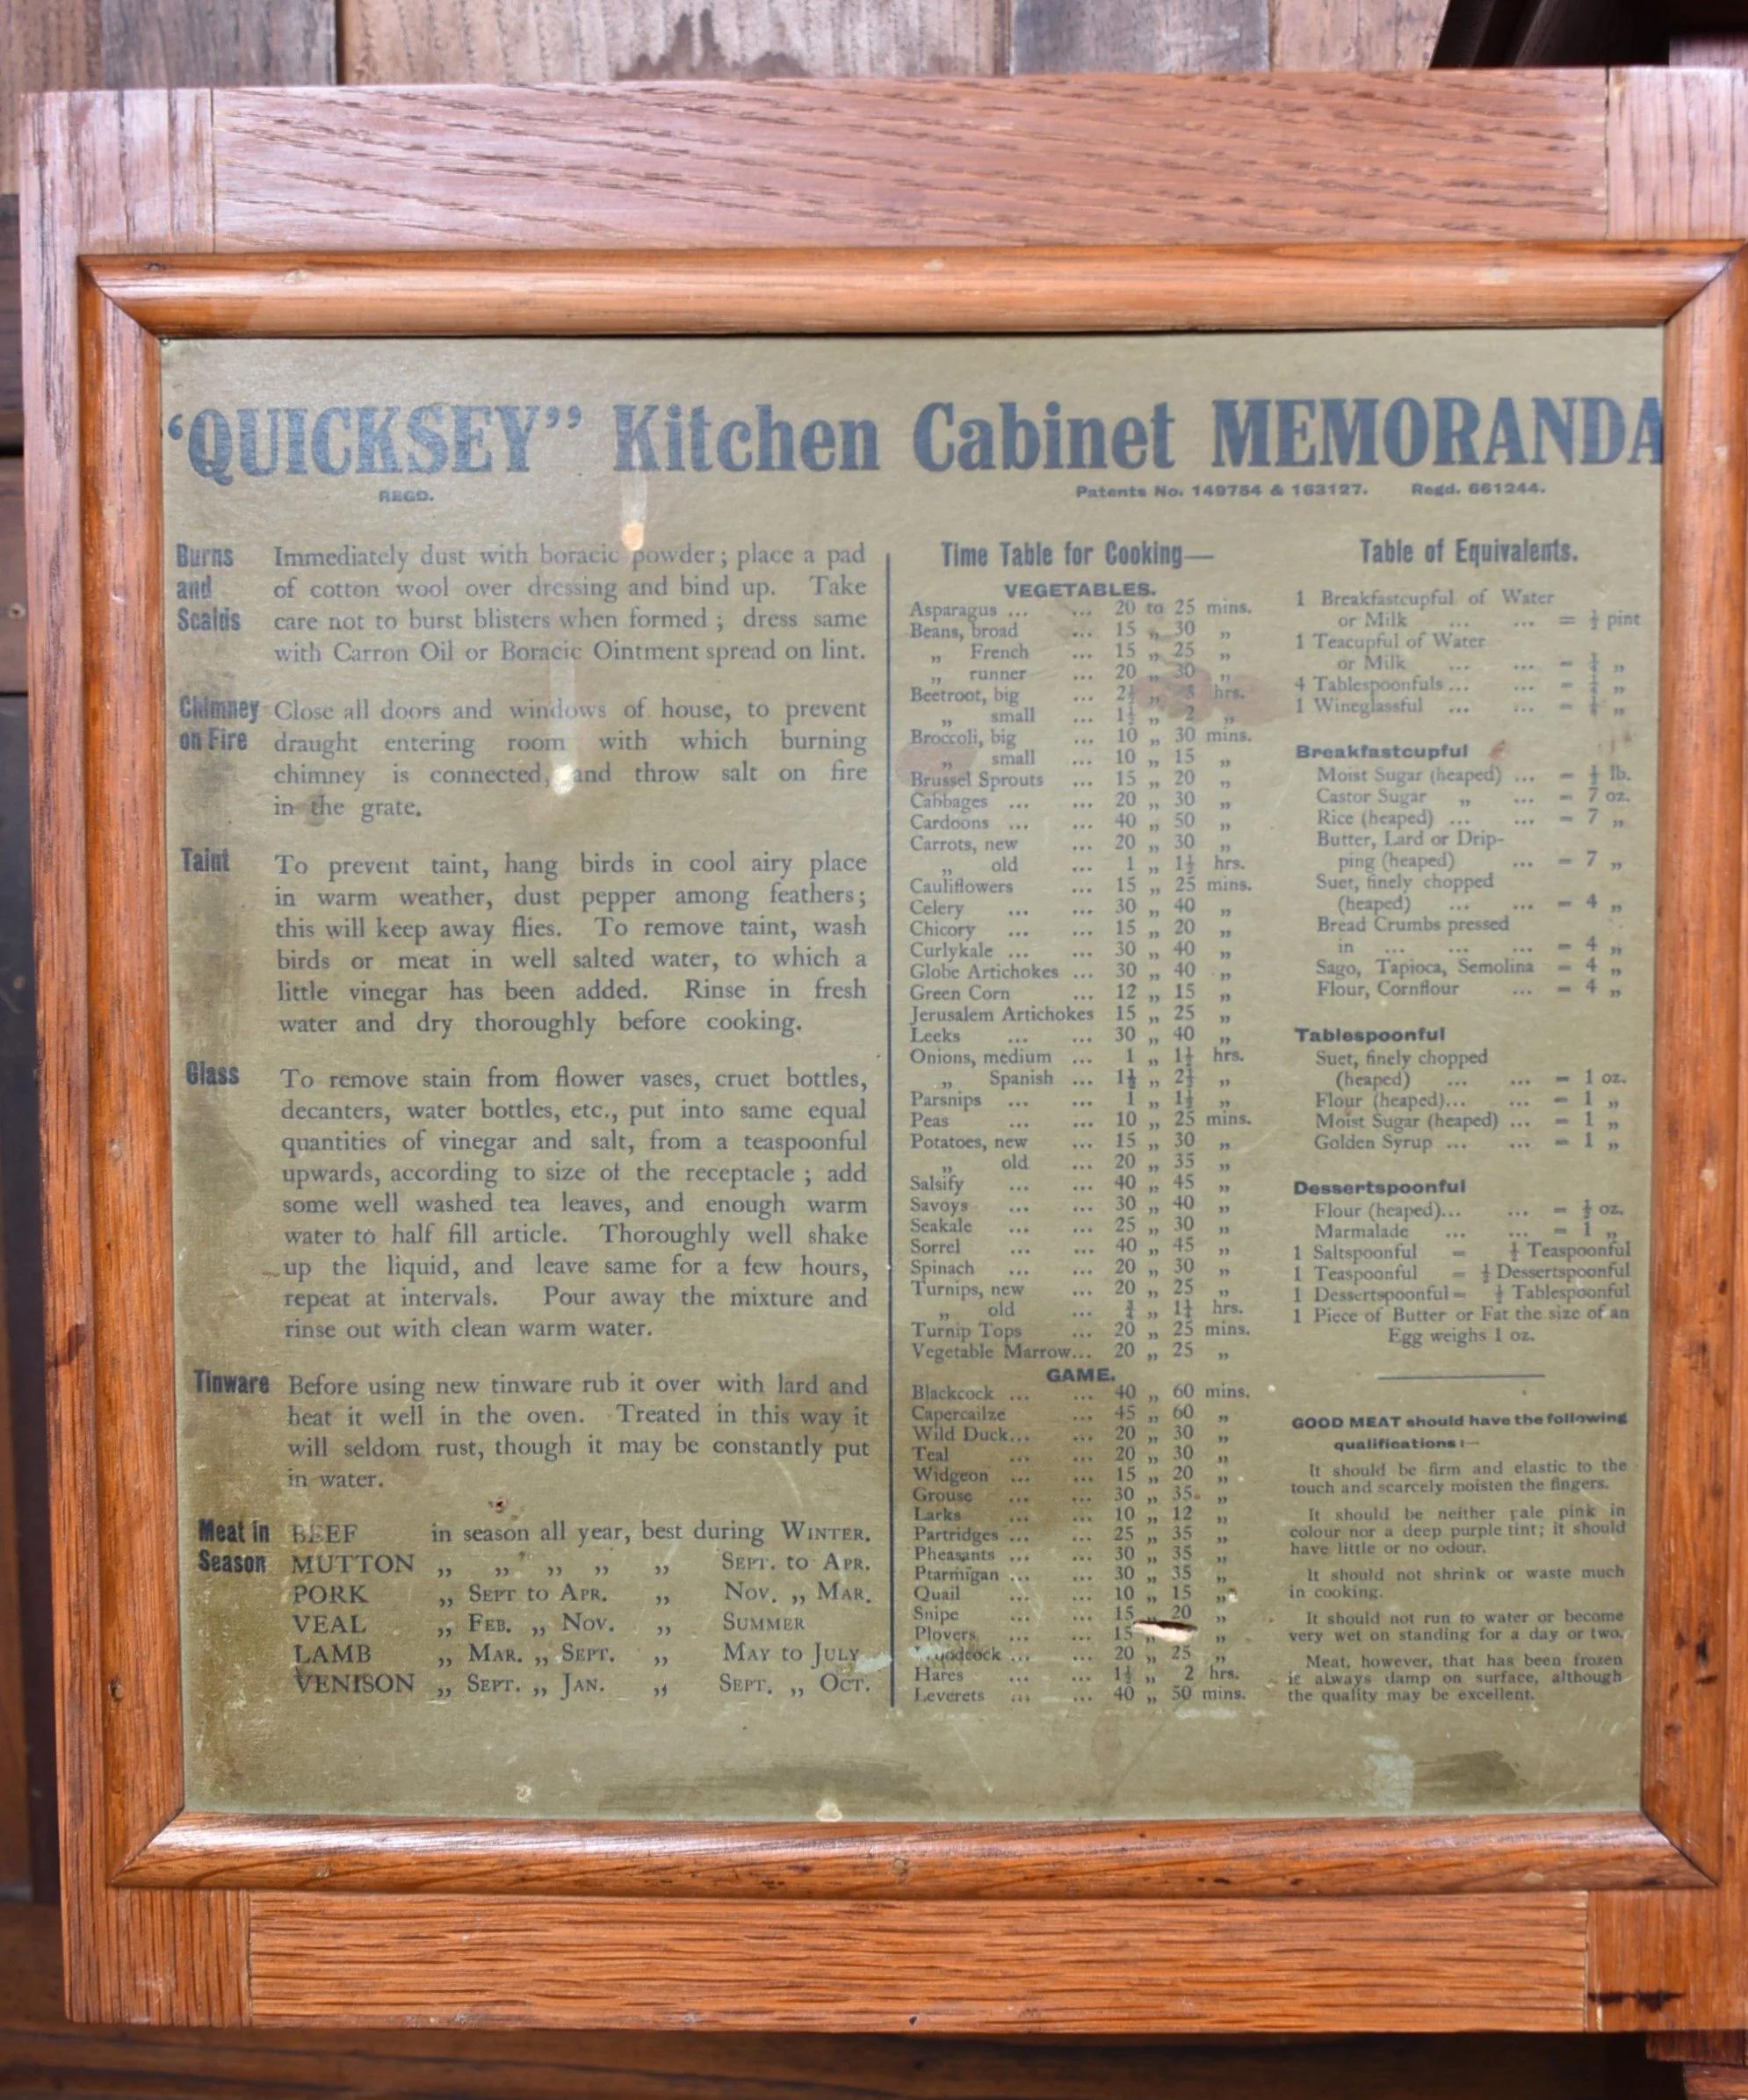 “QUICKSEY” Kitchen Cabinet MEMORANDA
REGD.
Patents No. 149754 & 163127. Regd. 661244.
Burns and Scalds
Immediately dust with boracic powder; place a pad
of cotton wool over dressing and bind up. Take
care not to burst blisters when formed; dress same
with Carron Oil or Boracic Ointment spread on lint.
Chimney on Fire
Close all doors and windows of house, to prevent
draught entering room with which burning
chimney is connected, and throw salt on fire
in the grate.
Taint
To prevent taint, hang birds in cool airy place
in warm weather, dust pepper among feathers;
this will keep away flies. To remove taint, wash
birds or meat in well salted water, to which a
little vinegar has been added. Rinse in fresh
water and dry thoroughly before cooking.
Glass
To remove stain from flower vases, cruet bottles,
decanters, water bottles, etc., put into same equal
quantities of vinegar and salt, from a teaspoonful
upwards, according to size of the receptacle; add
some well washed tea leaves, and enough warm
water to half fill article. Thoroughly well shake
up the liquid, and leave same for a few hours,
repeat at intervals. Pour away the mixture and
rinse out with clean warm water.
Tinware
Before using new tinware rub it over with lard and
heat it well in the oven. Treated in this way it
will seldom rust, though it may be constantly put
in water.
Meat in Season
BEEF in season all year, best during WINTER.
MUTTON ,, ,, ,, ,, ,, SEPT. to APR.
PORK ,, SEPT to APR. ,, NOV. ,, MAR.
VEAL ,, FEB. ,, NOV. ,, SUMMER
LAMB ,, MAR. ,, SEPT. ,, MAY to JULY
VENISON ,, SEPT. ,, JAN. ,, SEPT. ,, OCT.
Time Table for Cooking—
VEGETABLES.
Asparagus ... ... 20 to 25 mins.
Beans, broad ... 15 ,, 30 ,,
,, French ... 15 ,, 25 ,,
,, runner ... 20 ,, 30 ,,
Beetroot, big ... 2½ ,, 3 hrs.
,, small ... 1½ ,, 2 ,,
Broccoli, big ... 10 ,, 30 mins.
,, small ... 10 ,, 15 ,,
Brussel Sprouts ... 15 ,, 20 ,,
Cabbages ... ... 20 ,, 30 ,,
Cardoons ... ... 40 ,, 50 ,,
Carrots, new ... 20 ,, 30 ,,
,, old ... 1 ,, 1½ hrs.
Cauliflowers ... 15 ,, 25 mins.
Celery ... ... 30 ,, 40 ,,
Chicory ... ... 15 ,, 20 ,,
Curlykale ... ... 30 ,, 40 ,,
Globe Artichokes ... 30 ,, 40 ,,
Green Corn ... 12 ,, 15 ,,
Jerusalem Artichokes 15 ,, 25 ,,
Leeks ... ... 30 ,, 40 ,,
Onions, medium ... 1 ,, 1½ hrs.
,, Spanish ... 1½ ,, 2½ ,,
Parsnips ... ... 1 ,, 1½ ,,
Peas ... ... 10 ,, 25 mins.
Potatoes, new ... 15 ,, 30 ,,
,, old ... 20 ,, 35 ,,
Salsify ... ... 40 ,, 45 ,,
Savoys ... ... 30 ,, 40 ,,
Seakale ... ... 25 ,, 30 ,,
Sorrel ... ... 40 ,, 45 ,,
Spinach ... ... 20 ,, 30 ,,
Turnips, new ... 20 ,, 25 ,,
,, old ... ,, hrs.
Turnip Tops ... 20 ,, 25 mins.
Vegetable Marrow... 20 ,, 25 ,,
GAME.
Blackcock ... ... 40 ,, 60 mins.
Capercailze ... 45 ,, 60 ,,
Wild Duck... ... 20 ,, 30 ,,
Teal ... ... 20 ,, 30 ,,
Widgeon ... ... 15 ,, 20 ,,
Grouse ... ... 30 ,, 35 ,,
Larks ... ... 10 ,, 12 ,,
Partridges ... ... 25 ,, 35 ,,
Pheasants ... ... 30 ,, 35 ,,
Ptarmigan ... ... 30 ,, 35 ,,
Quail ... ... 10 ,, 15 ,,
Snipe ... ... 15 ,, 20 ,,
Plovers ... ... 15 ,, ,,
Woodcock ... ... 20 ,, 25 ,,
Hares ... ... 1½ ,, 2 hrs.
Leverets ... ... 40 ,, 50 mins.
Table of Equivalents.
1 Breakfastcupful of Water
or Milk ... ... = ½ pint
1 Teacupful of Water
or Milk ... ... = ,,
4 Tablespoonfuls ... ... = ,,
1 Wineglassful ... ... = ,,
Breakfastcupful
Moist Sugar (heaped) ... = ½ lb.
Castor Sugar ,, ... = 7 oz.
Rice (heaped) ... ... = 7 ,,
Butter, Lard or Drip-
ping (heaped) ... = 7 ,,
Suet, finely chopped
(heaped) ... ... = 4 ,,
Bread Crumbs pressed
in ... ... ... = 4 ,,
Sago, Tapioca, Semolina = 4 ,,
Flour, Cornflour ... = 4 ,,
Tablespoonful
Suet, finely chopped
(heaped) ... ... = 1 oz.
Flour (heaped)... ... = 1 ,,
Moist Sugar (heaped) ... = 1 ,,
Golden Syrup ... ... = 1 ,,
Dessertspoonful
Flour (heaped)... ... = ½ oz.
Marmalade ... ... = 1 ,,
1 Saltspoonful = Teaspoonful
1 Teaspoonful = ½ Dessertspoonful
1 Dessertspoonful = ½ Tablespoonful
1 Piece of Butter or Fat the size of an
Egg weighs 1 oz.
GOOD MEAT should have the following
qualifications:—
It should be firm and elastic to the
touch and scarcely moisten the fingers.
It should be neither pale pink in
colour nor a deep purple tint; it should
have little or no odour.
It should not shrink or waste much
in cooking.
It should not run to water or become
very wet on standing for a day or two.
Meat, however, that has been frozen
is always damp on surface, although
the quality may be excellent.